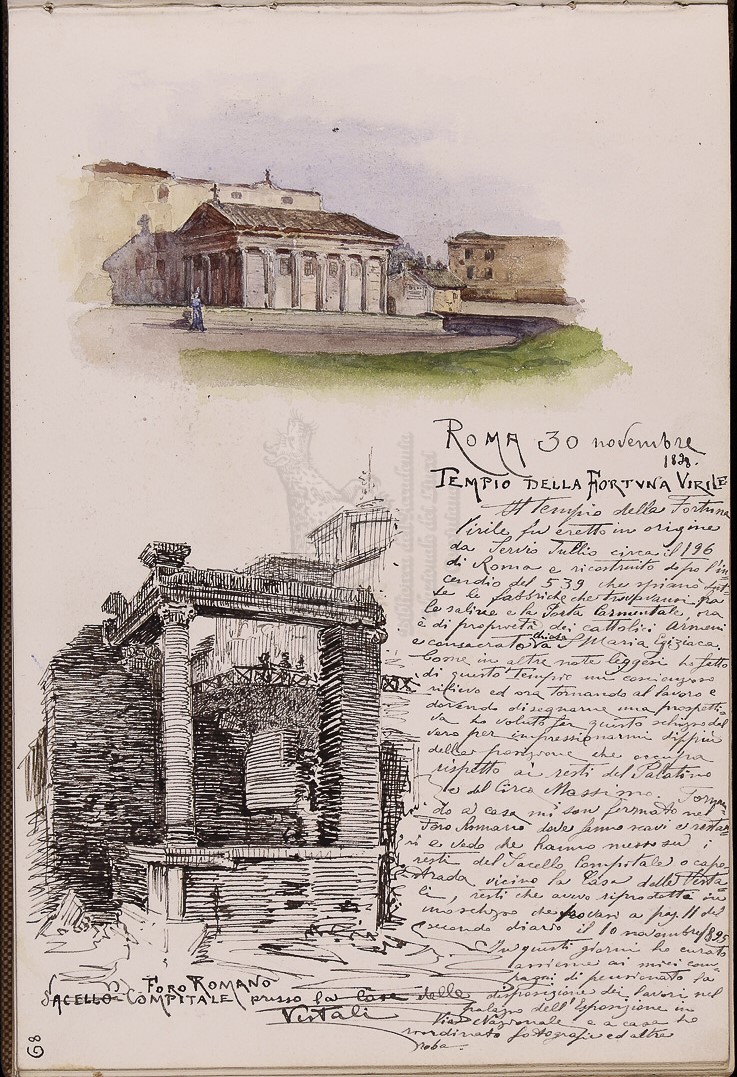 ROMA 30 novembre
1898.
TEMPIO DELLA FORTVNA VIRILE
Il tempio della Fortuna
Virile fu eretto in origine
da Servio Tullio circa il 196
di Roma e ricostruito dopo l'in
cendio del 539 che spianò tut
te le fabbriche che trovavansi fra
le saline e la Porta Carmentale, ora
è di proprietà dei cattolici Armeni
e consacrato a chiesa S. Maria Egiziaca.
Come in altre note leggesi ho fatto
di questo Tempio un coscienzioso
rilievo ed ora tornando al lavoro e
dovendo disegnarne una prospetti
va ho voluto far questo schizzo dal
vero per impressionarmi di più
della posizione che occupa
rispetto ai resti del Palatino
e del Circo Massimo. Tornan
do a casa mi son fermato nel
Foro Romano dove fanno scavi e restau
ri e vedo che hanno messo su i
resti del Sacello Compitale o capo
strada vicino la Casa delle Vesta
li, resti che avevo riprodotto in
uno schizzo che trovasi a pag. 11 del
secondo diario il 10 novembre 1895
In questi giorni ho curato
assieme ai miei com
pagni di pensionato la
disposizione dei lavori nel
palazzo dell'Esposizione in
Via Nazionale e a casa ho
riordinato fotografie ed altra
roba.
FORO ROMANO
SACELLO COMPITALE presso la Casa delle
Vestali
68